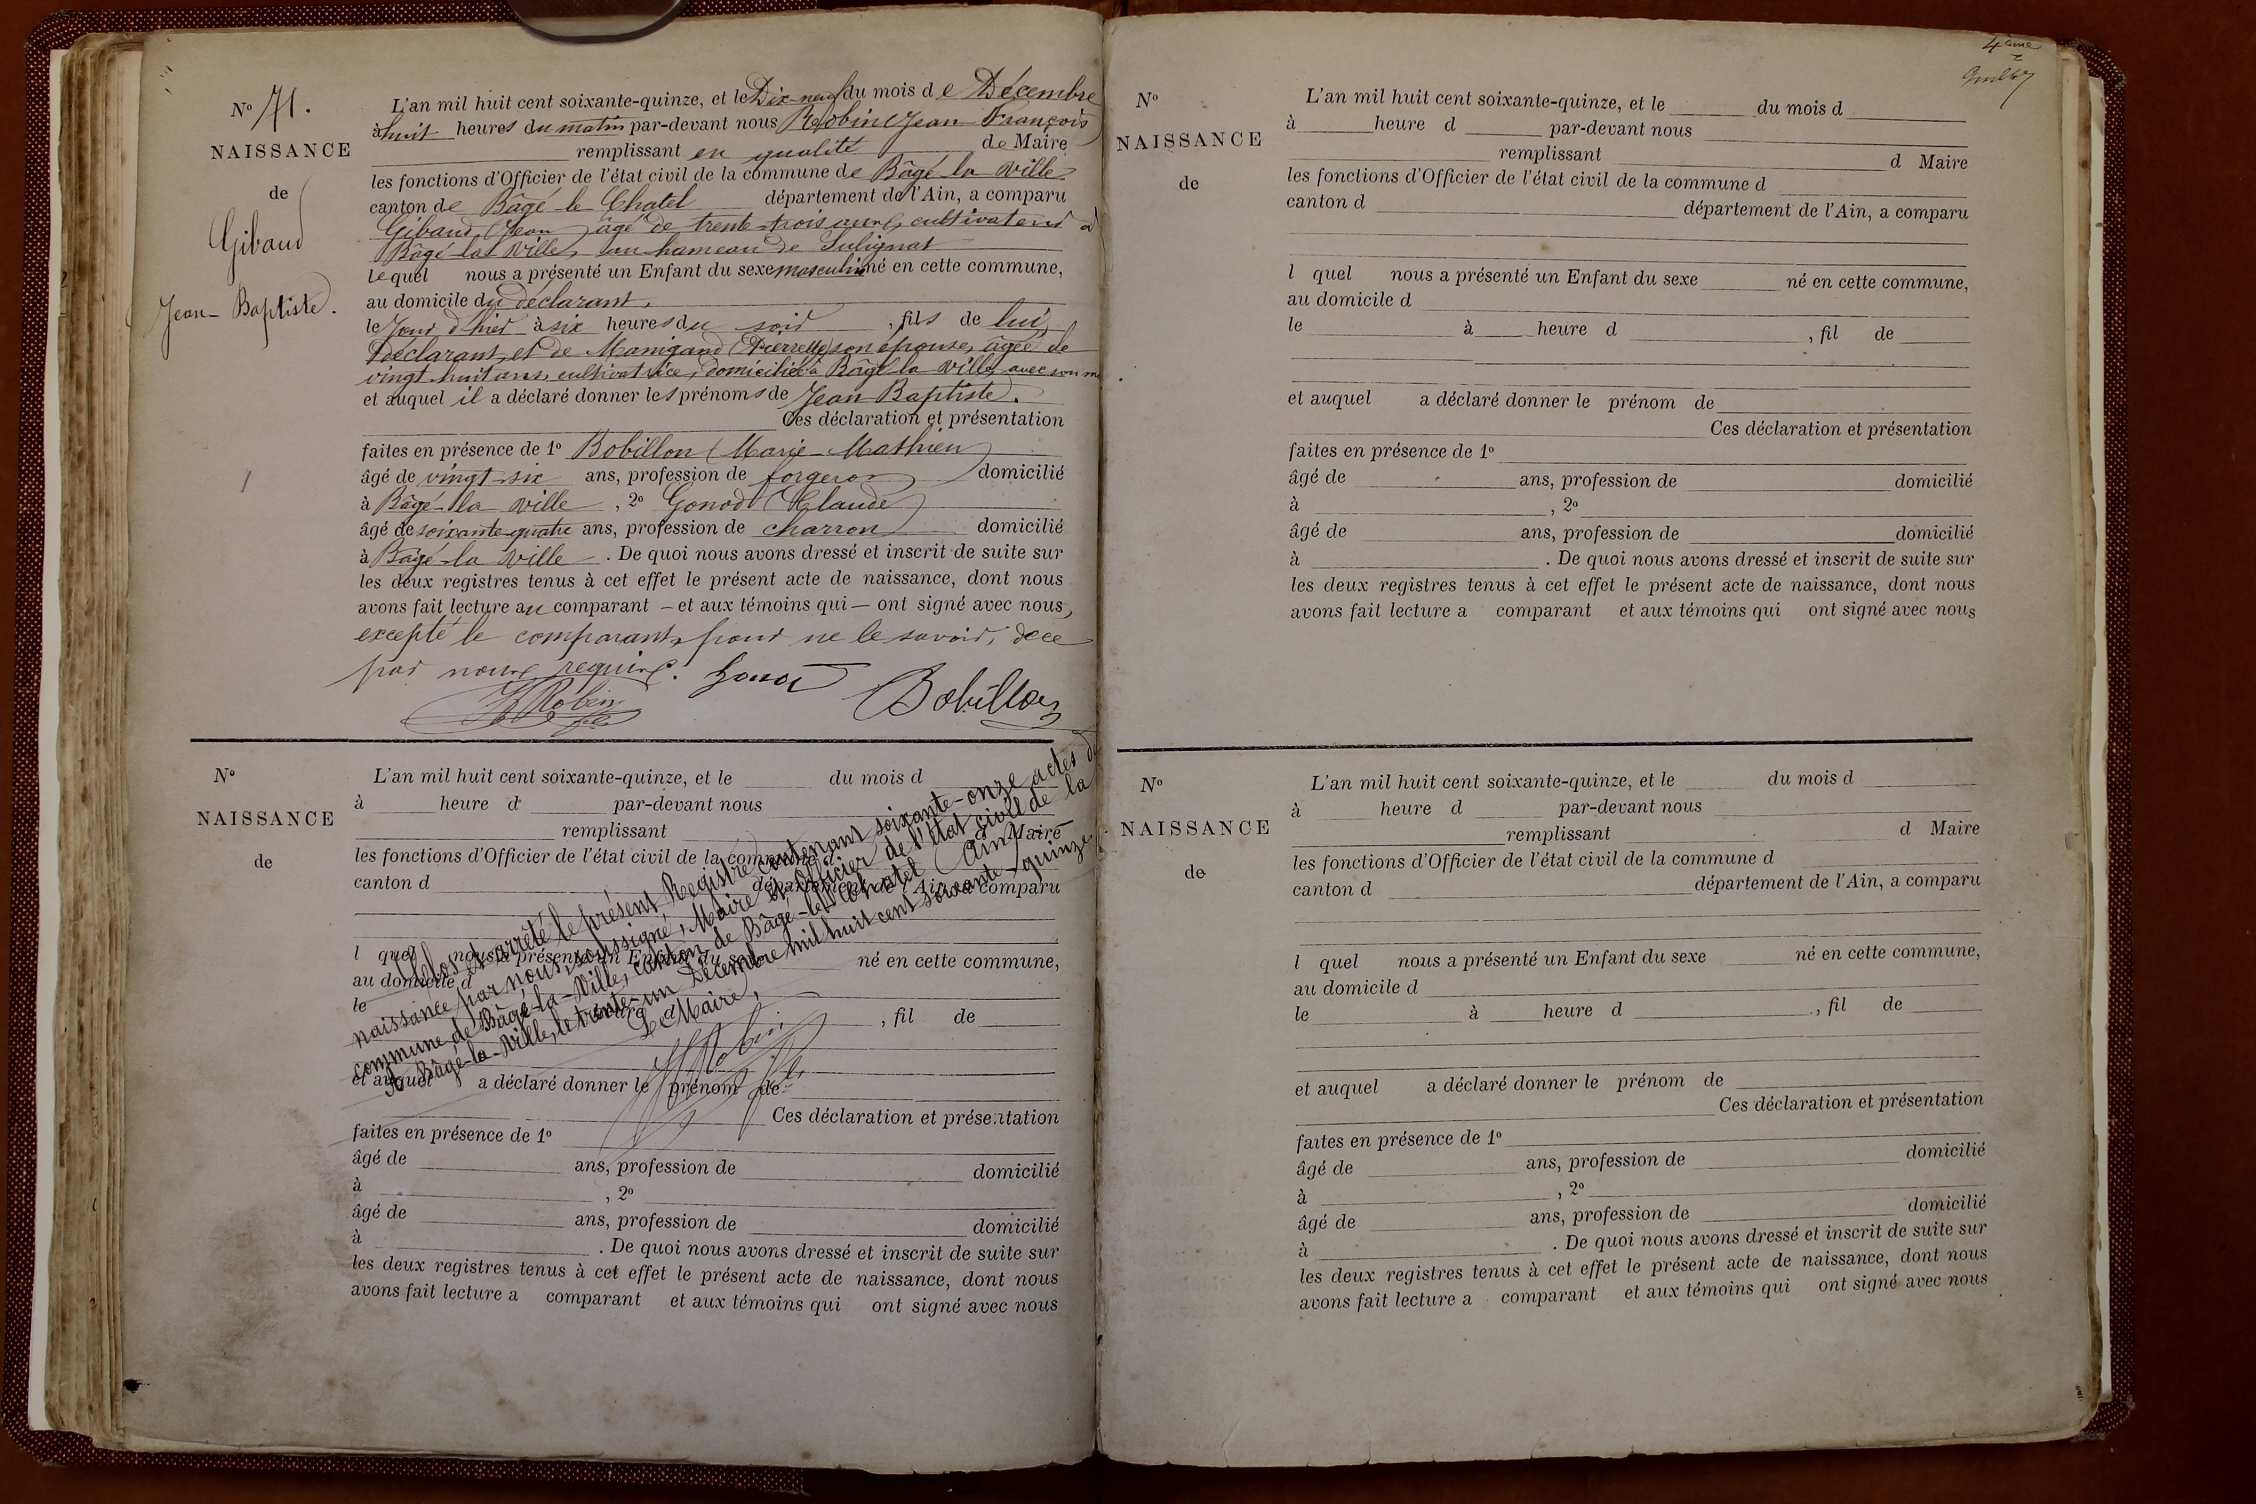 N° 71.
NAISSANCE
de
Gibaud
Jean-Baptiste.
L'an mil huit cent soixante-quinze, et le Dix-neuf du mois de Décembre
à huit heures du matin par-devant nous Robin (Jean François)
remplissant en qualité de Maire
les fonctions d'Officier de l'état civil de la commune de Bâgé-la-Ville
canton de Bâgé-le-Chatel département de l'Ain, a comparu
Gibaud (Jean) âgé de trente-trois ans, cultivateur à
Bâgé-la-Ville, au hameau de Sulignat
Lequel nous a présenté un Enfant du sexe masculin né en cette commune,
au domicile du déclarant,
le jour d'hier à six heures du soir, fils de lui,
déclarant, et de Manigand (Pierrette) son épouse, âgée de
vingt-huit ans, cultivatrice, domiciliée à Bâgé-la-Ville, avec son
et auquel il a déclaré donner les prénoms de Jean Baptiste.
Ces déclaration et présentation
faites en présence de 1° Bobillon (Marie-Mathieu)
âgé de vingt-six ans, profession de forgeron domicilié
à Bâgé-la-Ville, 2° Gonod (Claude)
âgé de soixante-quatre ans, profession de charron domicilié
à Bâgé-la-Ville. De quoi nous avons dressé et inscrit de suite sur
les deux registres tenus à cet effet le présent acte de naissance, dont nous
avons fait lecture au comparant – et aux témoins qui – ont signé avec nous,
excepté le comparant, pour ne le savoir, de ce
par nous requis. Gonod
Bobillon
Robin
N°
NAISSANCE
de
L'an mil huit cent soixante-quinze, et le du mois d
à heure d par-devant nous
remplissant d Maire
les fonctions d'Officier de l'état civil de la commune d
canton d département de l'Ain, a comparu
l quel nous a présenté un Enfant du sexe né en cette commune,
au domicile d
le à heure d , fil de
et auquel a déclaré donner le prénom de
Ces déclaration et présentation
faites en présence de 1°
âgé de ans, profession de domicilié
à , 2°
âgé de ans, profession de domicilié
à . De quoi nous avons dressé et inscrit de suite sur
les deux registres tenus à cet effet le présent acte de naissance, dont nous
avons fait lecture a comparant et aux témoins qui ont signé avec nous
Clos et arrêté le présent Registre contenant soixante-onze actes de
naissance par nous, soussigné, Maire et Officier de l'état civil de la
commune de Bâgé-la-Ville, canton de Bâgé-le-Chatel (Ain)
A Bâgé-la-Ville, le trente-un Décembre mil huit cent soixante-quinze.
Le Maire,
Robin
4ème
N°
NAISSANCE
de
L'an mil huit cent soixante-quinze, et le du mois d
à heure d par-devant nous
remplissant d Maire
les fonctions d'Officier de l'état civil de la commune d
canton d département de l'Ain, a comparu
l quel nous a présenté un Enfant du sexe né en cette commune,
au domicile d
le à heure d , fil de
et auquel a déclaré donner le prénom de
Ces déclaration et présentation
faites en présence de 1°
âgé de ans, profession de domicilié
à , 2°
âgé de ans, profession de domicilié
à . De quoi nous avons dressé et inscrit de suite sur
les deux registres tenus à cet effet le présent acte de naissance, dont nous
avons fait lecture a comparant et aux témoins qui ont signé avec nous
N°
NAISSANCE
de
L'an mil huit cent soixante-quinze, et le du mois d
à heure d par-devant nous
remplissant d Maire
les fonctions d'Officier de l'état civil de la commune d
canton d département de l'Ain, a comparu
l quel nous a présenté un Enfant du sexe né en cette commune,
au domicile d
le à heure d , fil de
et auquel a déclaré donner le prénom de
Ces déclaration et présentation
faites en présence de 1°
âgé de ans, profession de domicilié
à , 2°
âgé de ans, profession de domicilié
à . De quoi nous avons dressé et inscrit de suite sur
les deux registres tenus à cet effet le présent acte de naissance, dont nous
avons fait lecture a comparant et aux témoins qui ont signé avec nous